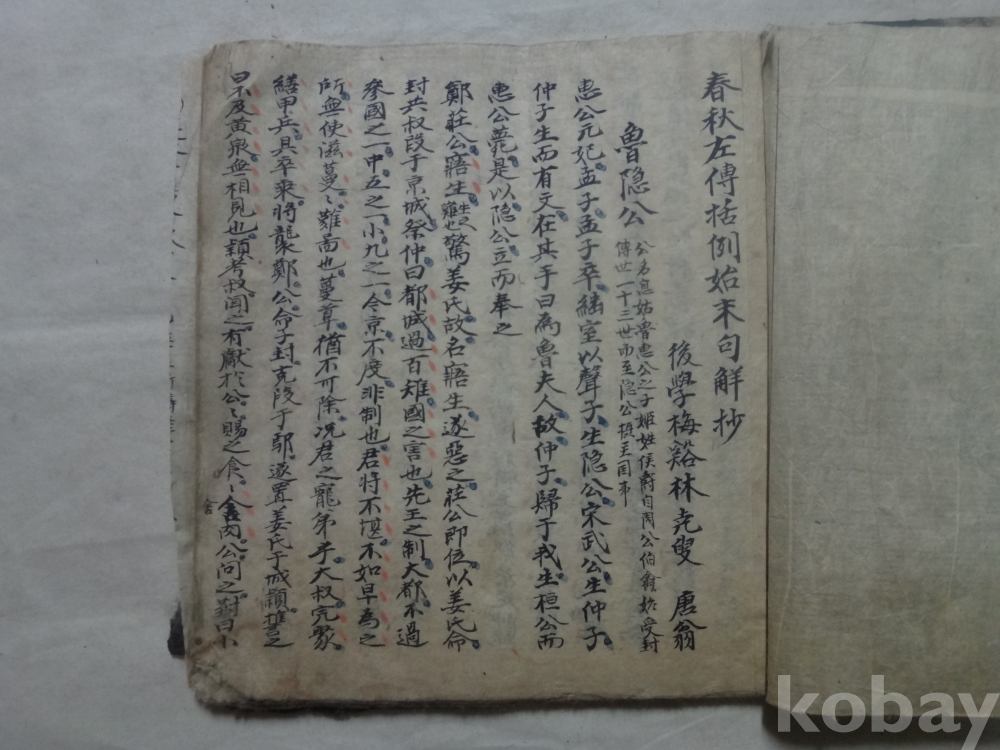 春秋左傳括例始末句解抄
後學梅谿林堯叟 唐翁
魯隐公
公名息姑魯惠公之子姬姓侯爵自周公伯禽始受封
傳世一十三世而至隐公攝主国事
惠公元妃孟子孟子卒継室以聲子生隐公宋武公生仲子
仲子生而有文在其手曰為魯夫人故仲子歸于我生桓公而
惠公薨是以隐公立而奉之
鄭莊公寤生驚姜氏故名寤生遂惡之莊公即位以姜氏命
封共叔段于京城祭仲曰都城過百雉國之害也先王之制大都不過
參國之一中五之一小九之一今京不度非制也君将不堪不如早為之
所無使滋蔓〻難啚也蔓草猶不可除况君之寵弟乎大叔完聚
繕甲兵具卒乘将襲鄭公命子封克段于鄢遂置姜氏于城頴誓之
曰不及黄泉無相見也頴考叔聞之有獻於公〻賜之食〻舎肉公问之對曰小
舎
kobay